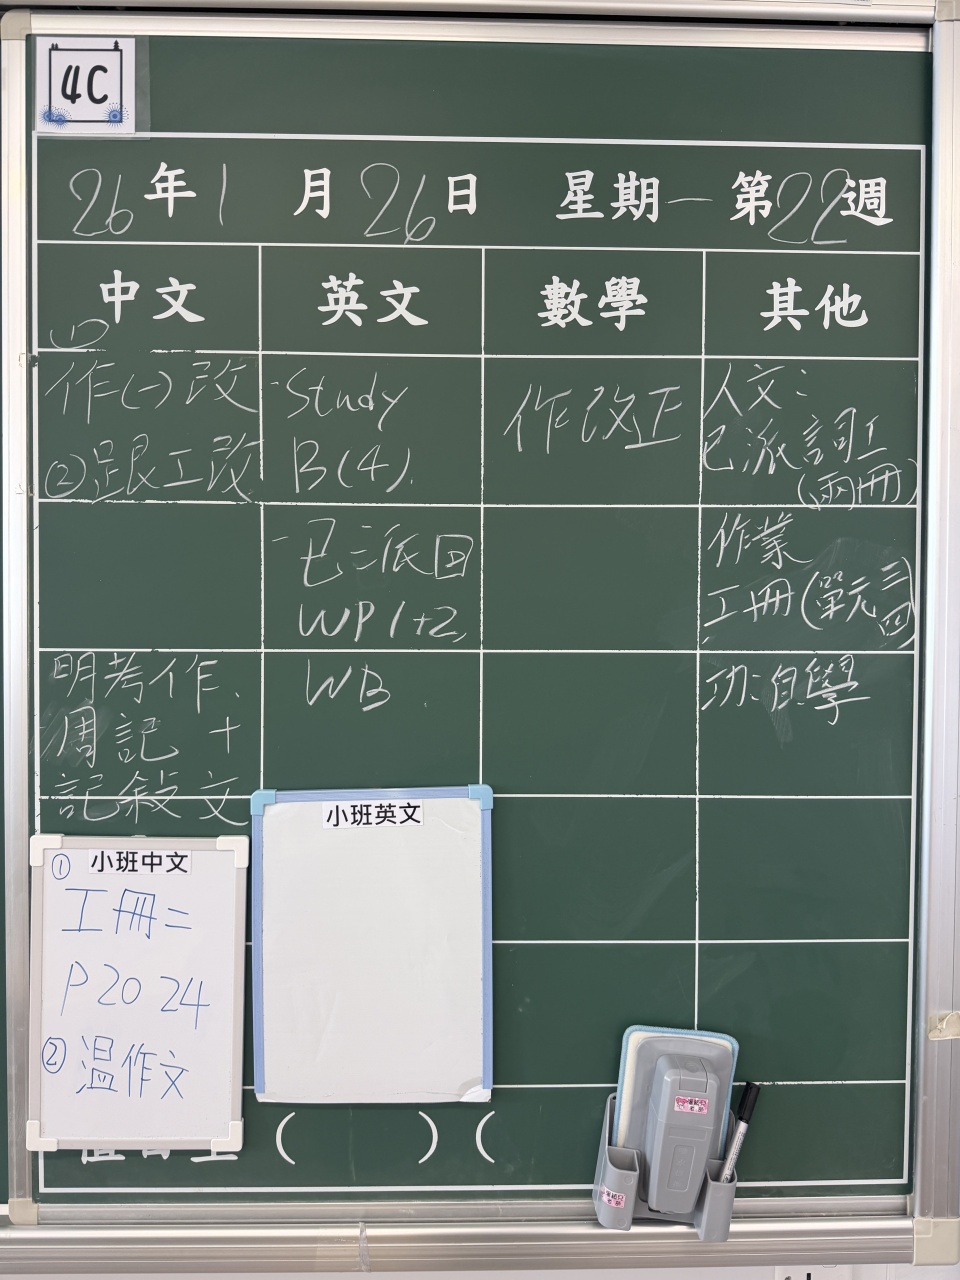 4C
26年1月26日 星期一 第22週
中文 英文 數學 其他
①
作(一)改
②跟工改
明考作、
周記+
記敍文
-Study
B(4).
-已派回
WP1+2,
WB
作改正
人文:
已派詞工
(兩冊)
作業
工冊(單元三四)
功:自學
小班中文
①
工冊二
P20 24
②溫作文
小班英文
( ) (